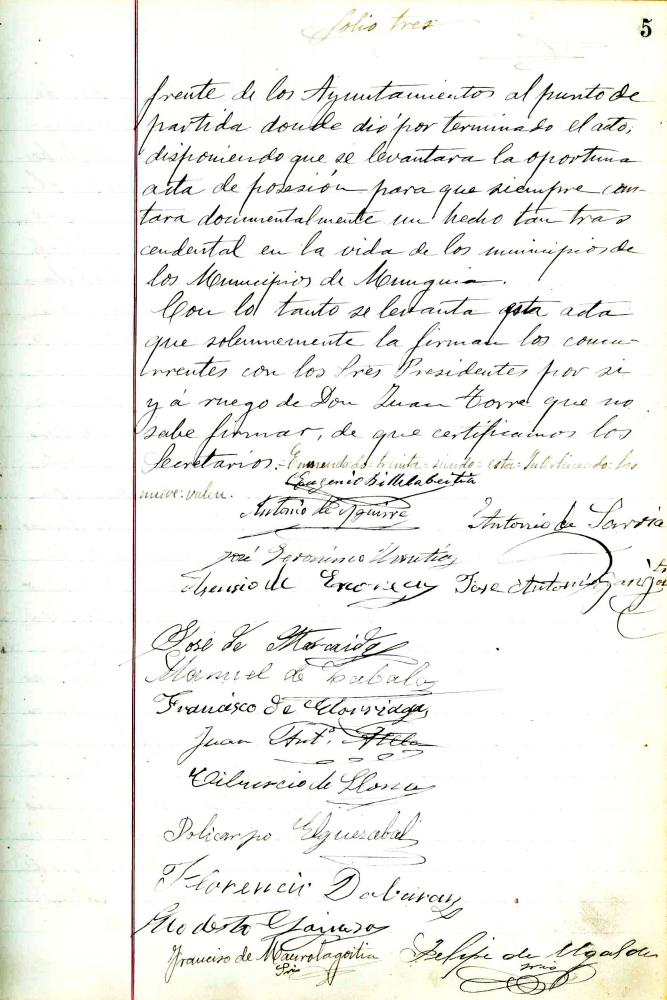 folio tres
5
frente de los Ayuntamientos al punto de
partida donde dió por terminado el acto,
disponiendo que se levantara la oportuna
acta de posesión para que siempre cons-
tara documentalmente un hecho tan tras
cendental en la vida de los municipios de
los Municipios de Munguia.
Con lo tanto se levanta esta acta
que solemnemente la firman los concu-
rrentes con los Sres Presidentes por si
y á ruego de Don Juan Torre que no
sabe firmar, de que certificamos los
Secretarios.=Enmendado=treinta=siendo=esta=Interlineado=las
nueve=valen.
Eugenio Billelabeitia
Antonio de Aguirre Antonio de Sarria
José Geronimo Urrutia
Asensio de Jose Antonio
José de Marcaida
Manuel de Zabala
Francisco de Elorriaga
Juan Antº. Atela
Tiburcio de Llona
Policarpo Elguezabal
Florencio Dabaran
Modesto
Francisco de Maurolagoitia Felipe de Ugalde
Srio Srio